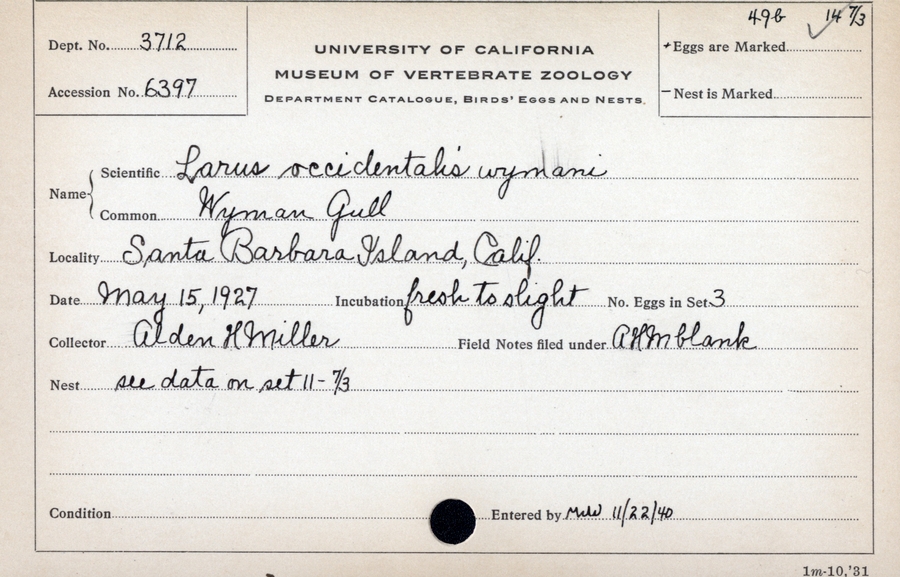 49b 14 7/3
Dept. No. 3712
UNIVERSITY OF CALIFORNIA
+Eggs are Marked
MUSEUM OF VERTEBRATE ZOOLOGY
Accession No. 6397
DEPARTMENT CATALOGUE, BIRDS' EGGS AND NESTS.
-Nest is Marked
Name Scientific Larus occidentalis wymani
Common Wyman Gull
Locality Santa Barbara Island, Calif.
Date May 15, 1927 Incubation fresh to slight No. Eggs in Set 3
Collector Alden H Miller Field Notes filed under AHM blank
Nest see data on set 11-7/3
Condition Entered by MWW 11/22/40
1m-10,'31